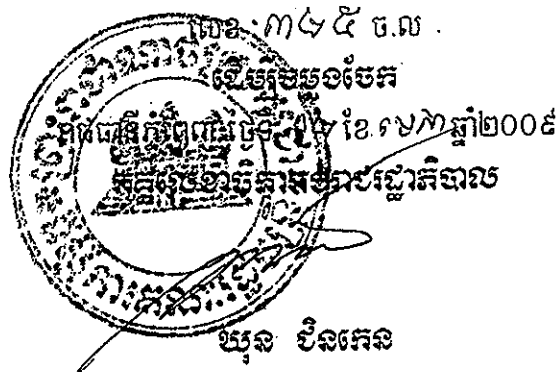 លេខ ៣៤៥ ច.ល
ដើម្បីចម្លងចែក
រាជធានីភ្នំពេញ ថ្ងៃទី ខែ មេសា ឆ្នាំ២០០៩
អគ្គលេខាធិការរាជរដ្ឋាភិបាល
ឃុន ជិនកេន